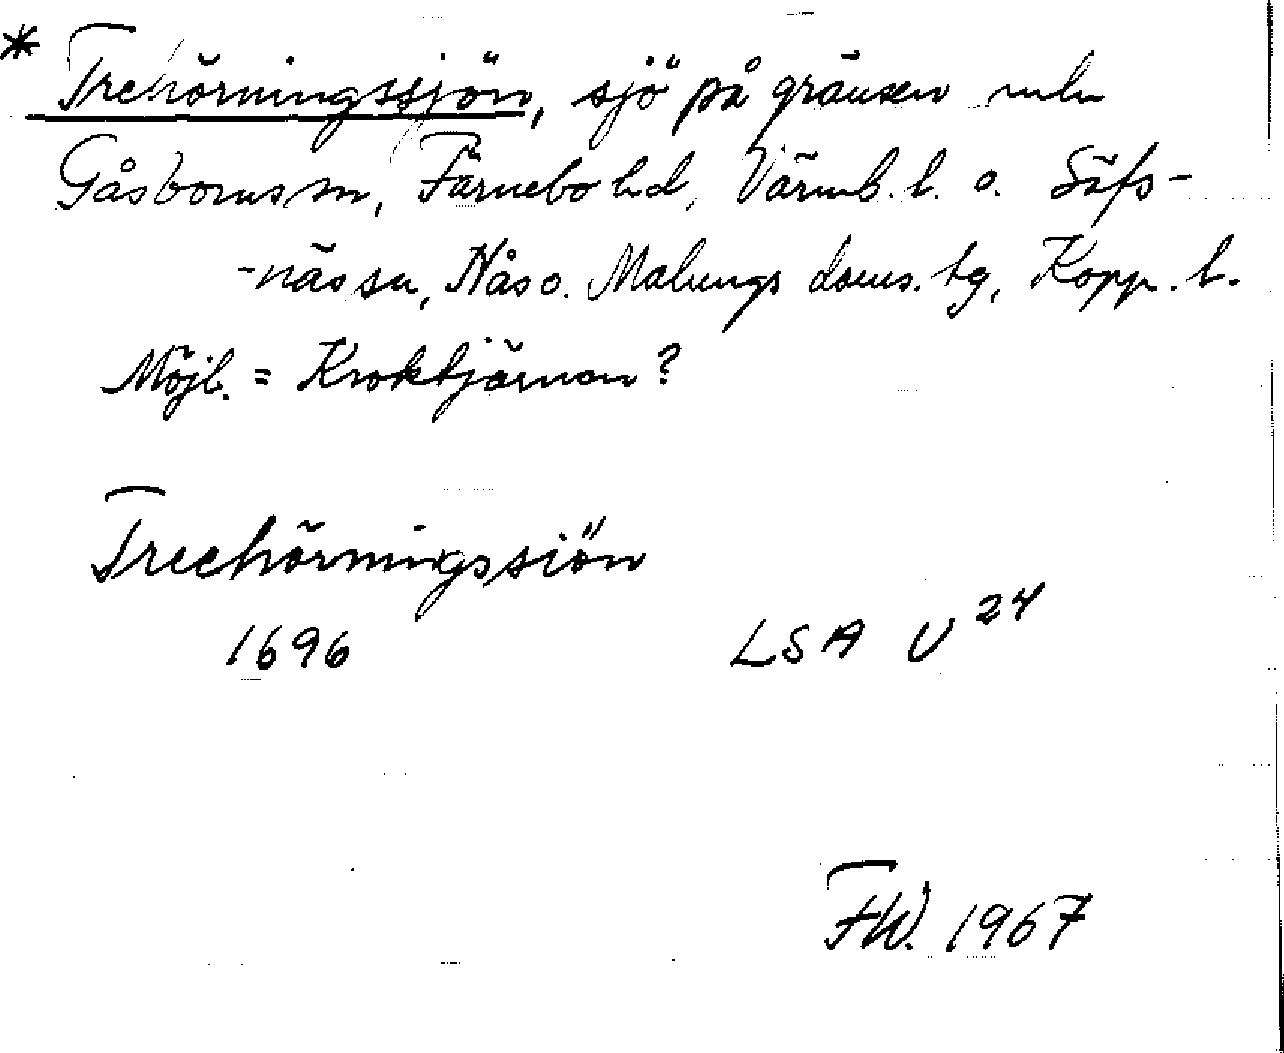 * Trehörningssjön, sjö på gränsen mln
Gåsborns sn, Färnebo hd, Värml. l. o. Säfs-
-näs sn, Nås o. Malungs doms. tg, Kopp. l.
Möjl. = Kroktjärnen?
Treehörningssiön
1696 LSA U 24
FW. 1967